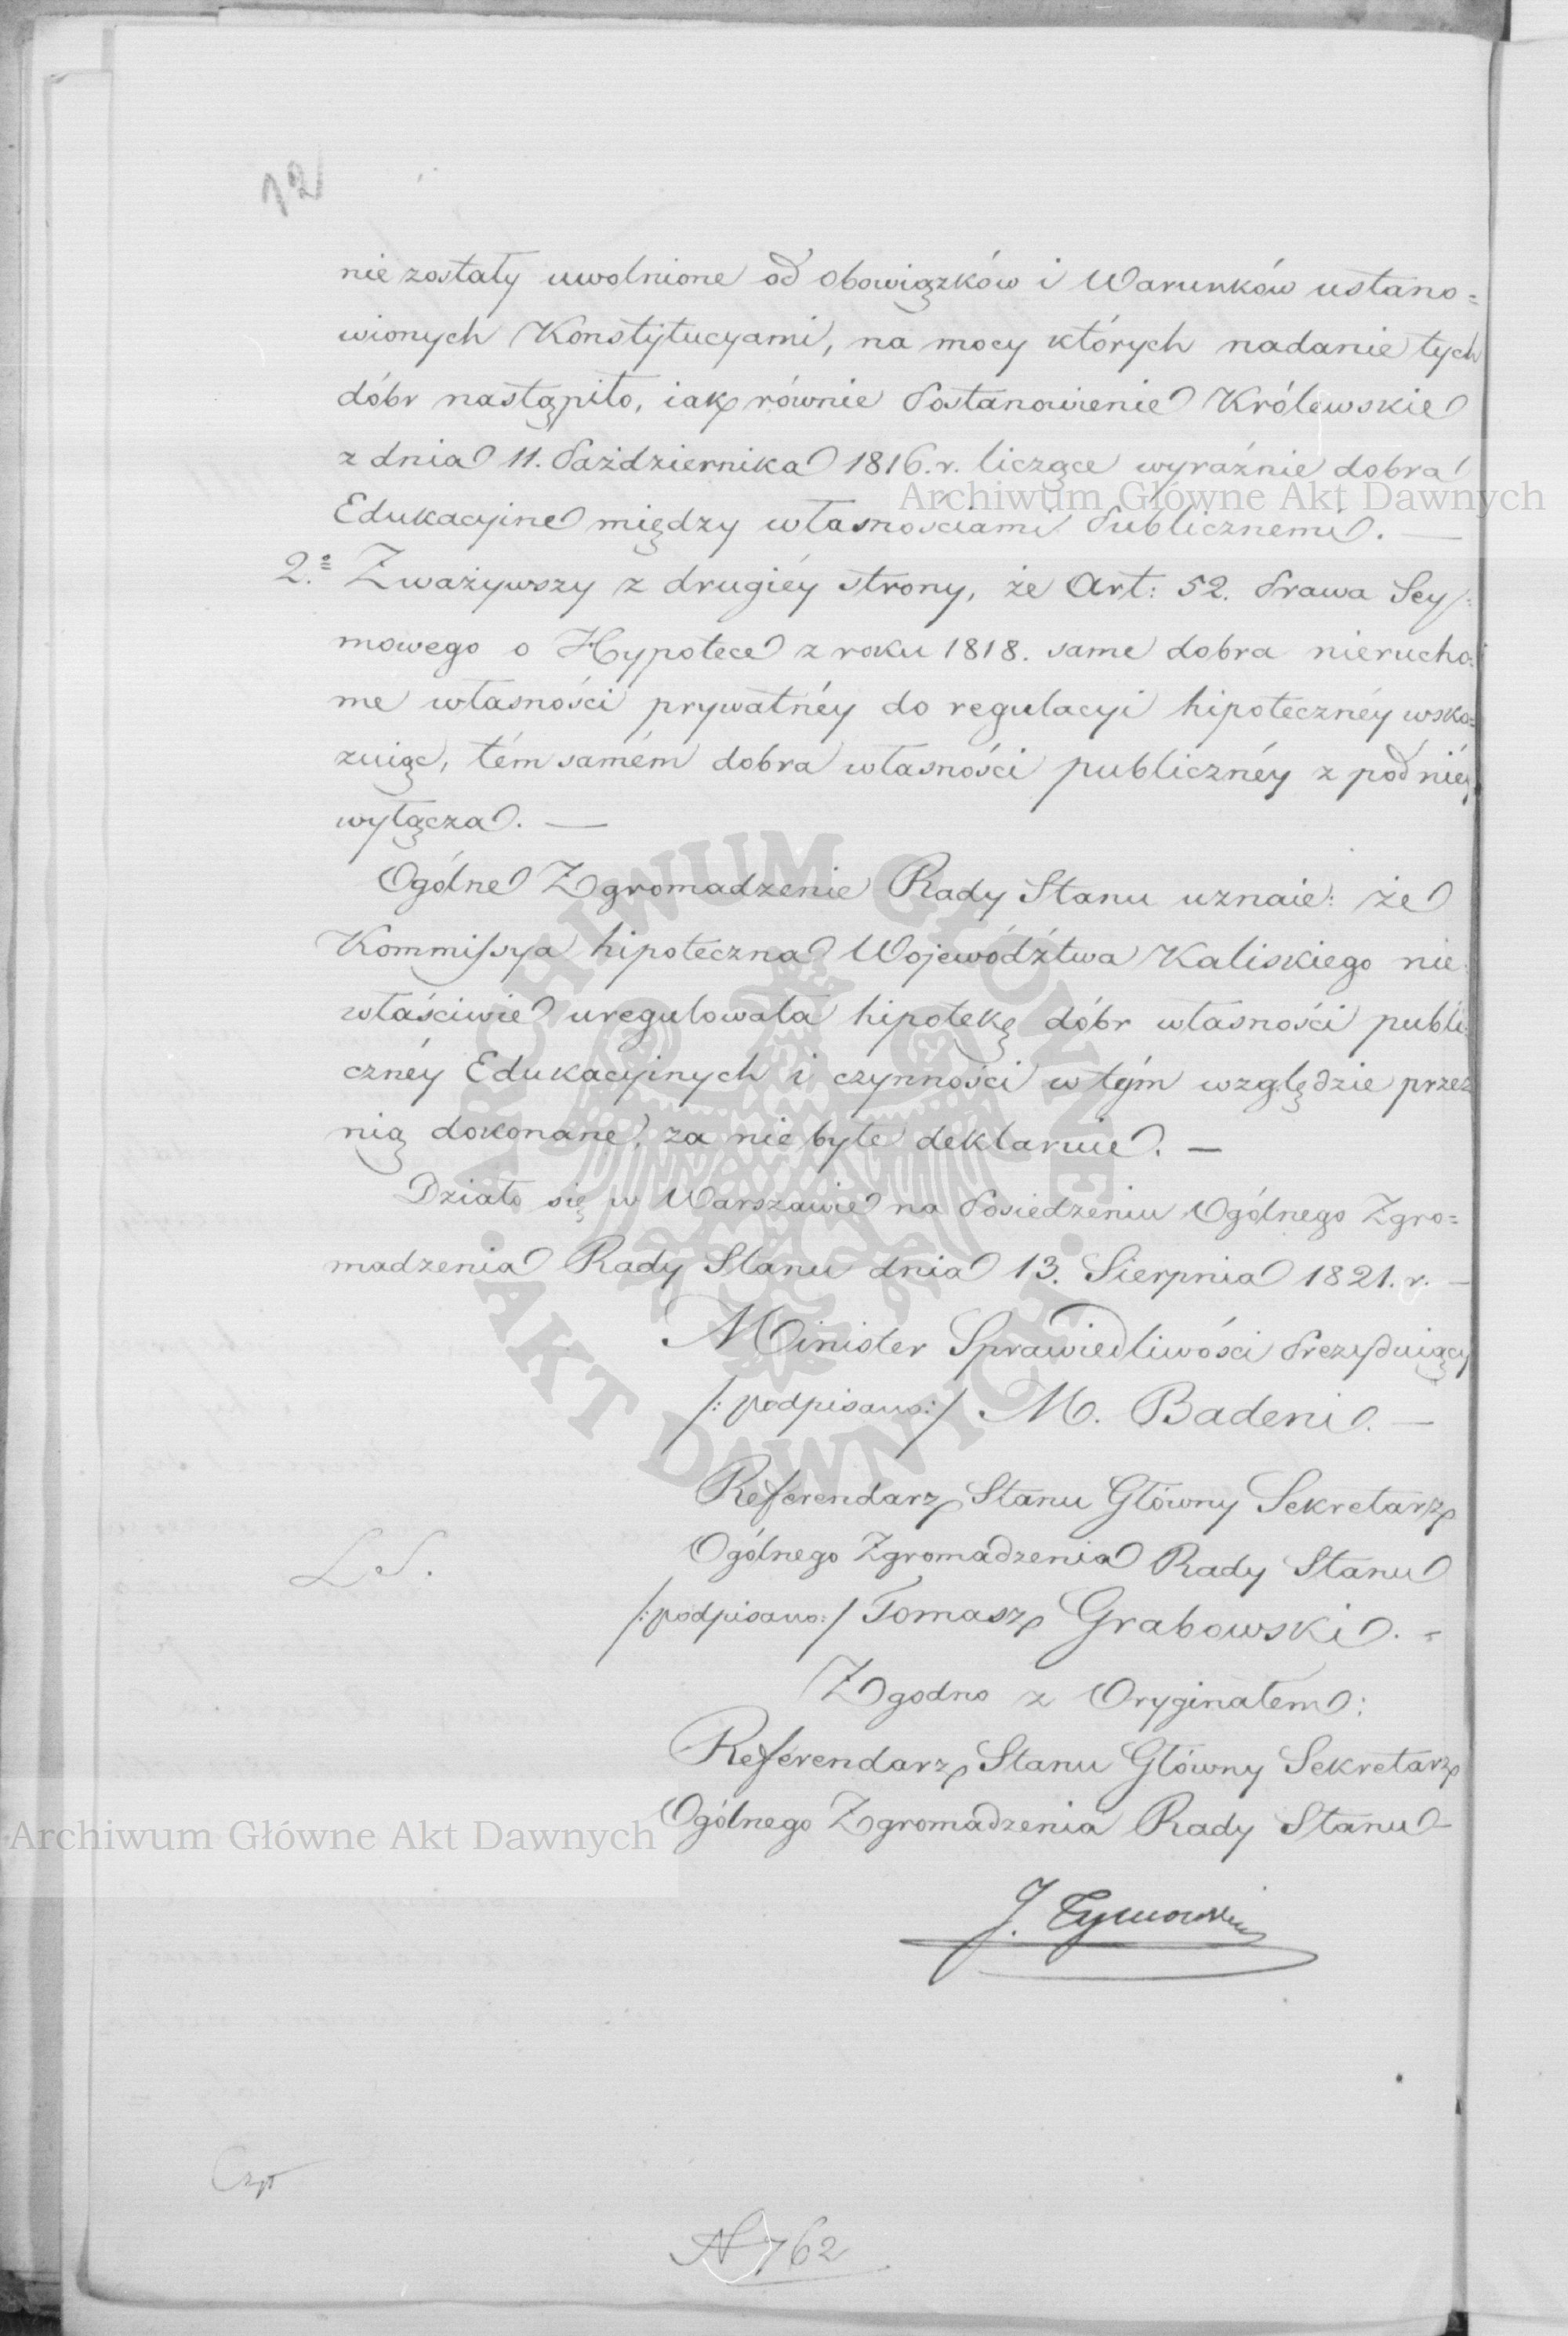 12
nie zostały uwolnione od obowiązków i Warunków ustano=
wionych Konstytucyami, na mocy których nadanie tych
dóbr nastąpiło, iak równie Postanowienie Królewskie
z dnia 11. Października 1816. r. liczące wyraźnie dobra
Archiwum Główne Akt Dawnych
Edukacyine między własnościami Publicznemi. —
2.º Zważywszy z drugiéy strony, że Art: 52. Prawa Sey=
mowego o Hypotece z roku 1818. same dobra nierucho=
me własności prywatnéy do regulacyi hipotecznéy wska=
zuiąc, tém samém dobra własności publicznéy z pod niéy
wyłącza. —
Ogólne Zgromadzenie Rady Stanu uznaie: że
Kommissya hipoteczna Województwa Kaliskiego nie=
właściwie uregulowała hipotekę dóbr własności publi=
cznéy Edukacyinych i czynności w tym względzie przez
nią dokonane, za nie byłe deklaruie. —
Działo się w Warszawie na Posiedzeniu Ogólnego Zgro=
madzenia Rady Stanu dnia 13. Sierpnia 1821. r. —
ARCHIWUM GŁÓWNE · AKT DAWNYCH ·
Minister Sprawiedliwości Prezyduiący
/: podpisano :/ M. Badeni. —
Referendarz Stanu Główny Sekretarz
Ogólnego Zgromadzenia Rady Stanu
L S.
/: podpisano :/ Tomasz Grabowski. =
Zgodno z Oryginałem:
Referendarz Stanu Główny Sekretarz
Ogólnego Zgromadzenia Rady Stanu
Archiwum Główne Akt Dawnych
J. Tymowski
N 762